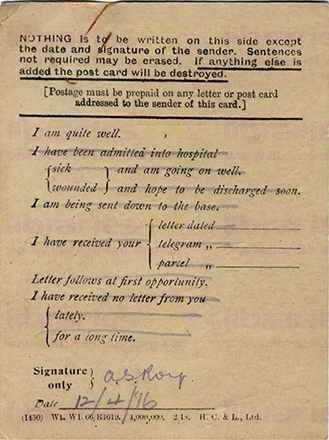 NOTHING is to be written on this side except
the date and signature of the sender. Sentences
not required may be erased. If anything else is
added the post card will be destroyed.
[Postage must be prepaid on any letter or post card
addressed to the sender of this card.]
I am quite well.
I have been admitted into hospital
{ sick } and am going on well.
{ wounded } and hope to be discharged soon.
I am being sent down to the base.
I have received your { letter dated
telegram ,,
parcel ,,
Letter follows at first opportunity.
I have received no letter from you
{ lately.
for a long time.
Signature only } A S Roy
Date 12/4/16
(1450) Wt. 4,000,000. H. C. & L., Ltd.